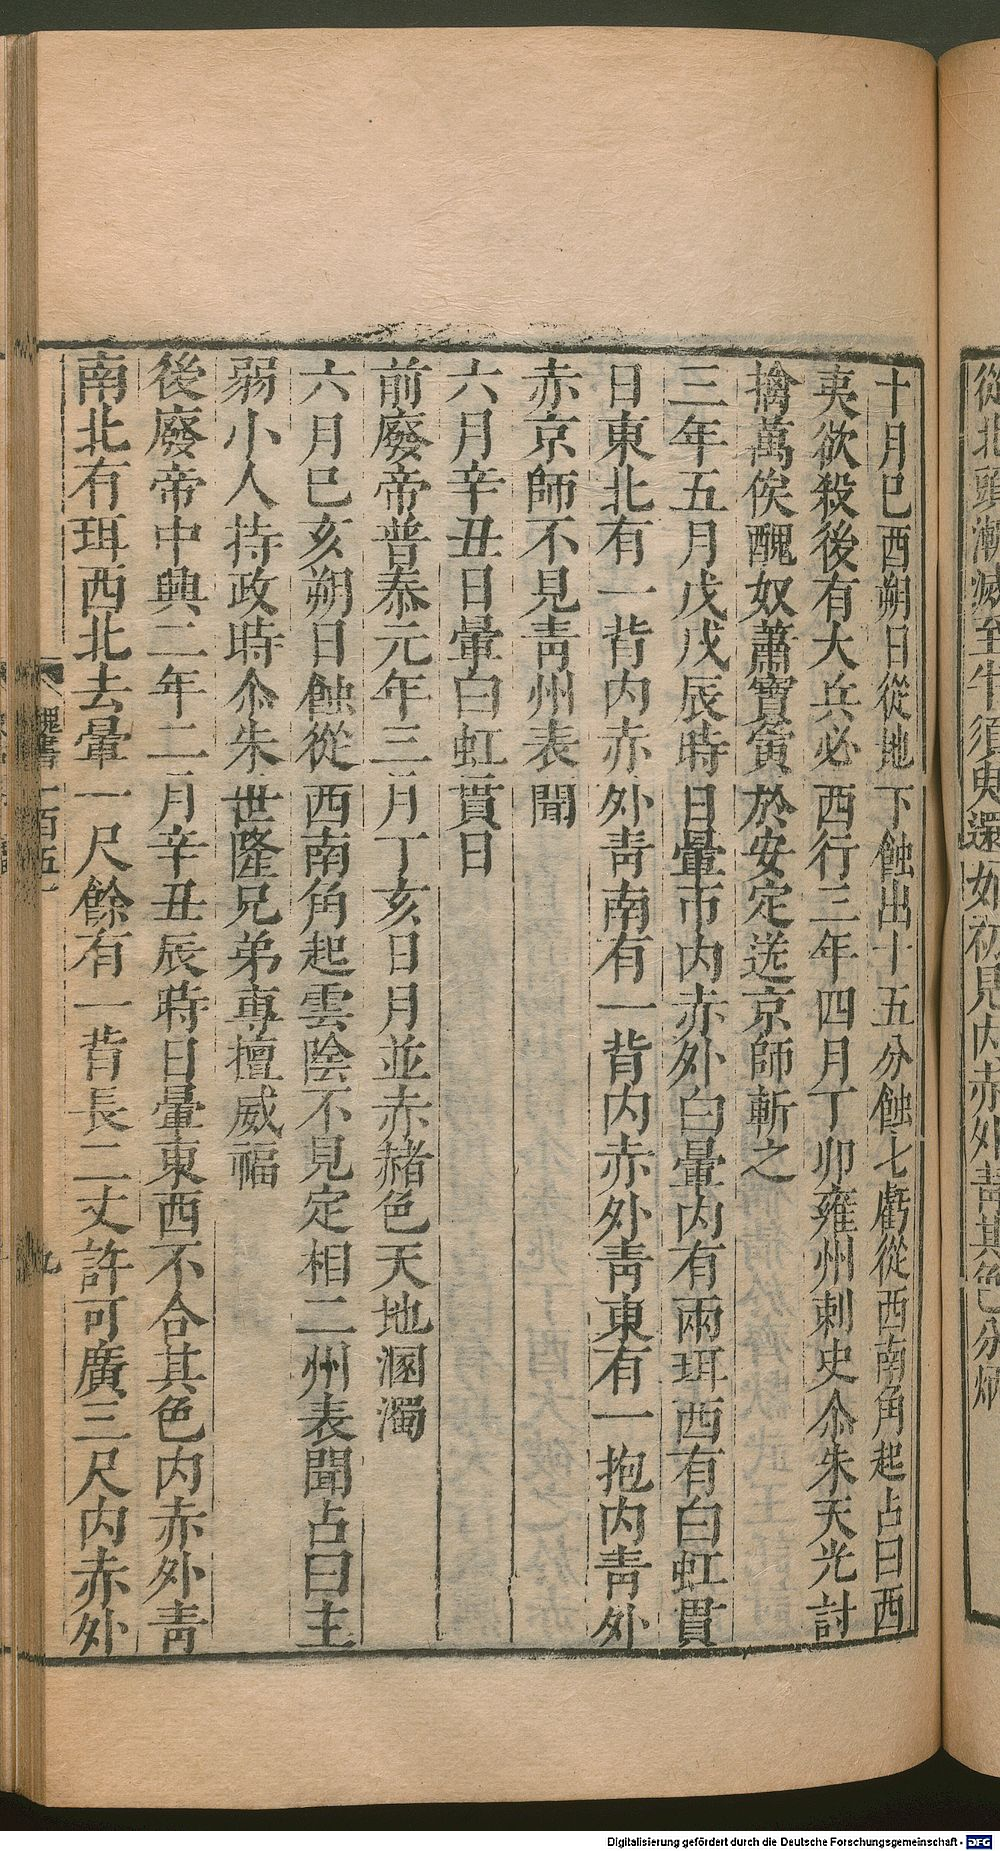 從北頭漸滅至午須臾還如初見內赤外青其色分炳
十月己酉朔日從地下蝕出十五分蝕七虧從西南角起占曰西
夷欲殺後有大兵必西行三年四月丁卯雍州刺史尒朱天光討
擒萬俟醜奴蕭寶夤於安定送京師斬之
三年五月戊戌辰時日暈帀內赤外白暈內有兩珥西有白虹貫
日東北有一背內赤外青南有一背內赤外青東有一抱內青外
赤京師不見青州表聞
六月辛丑日暈白虹貫日
前廢帝普泰元年三月丁亥日月並赤赭色天地溷濁
六月己亥朔日蝕從西南角起雲陰不見定相二州表聞占曰主
弱小人持政時尒朱世隆兄弟專擅威福
後廢帝中興二年二月辛丑辰時日暈東西不合其色內赤外青
南北有珥西北去暈一尺餘有一背長二丈許可廣三尺內赤外
魏書一百五一
九
Digitalisierung gefördert durch die Deutsche Forschungsgemeinschaft - DFG